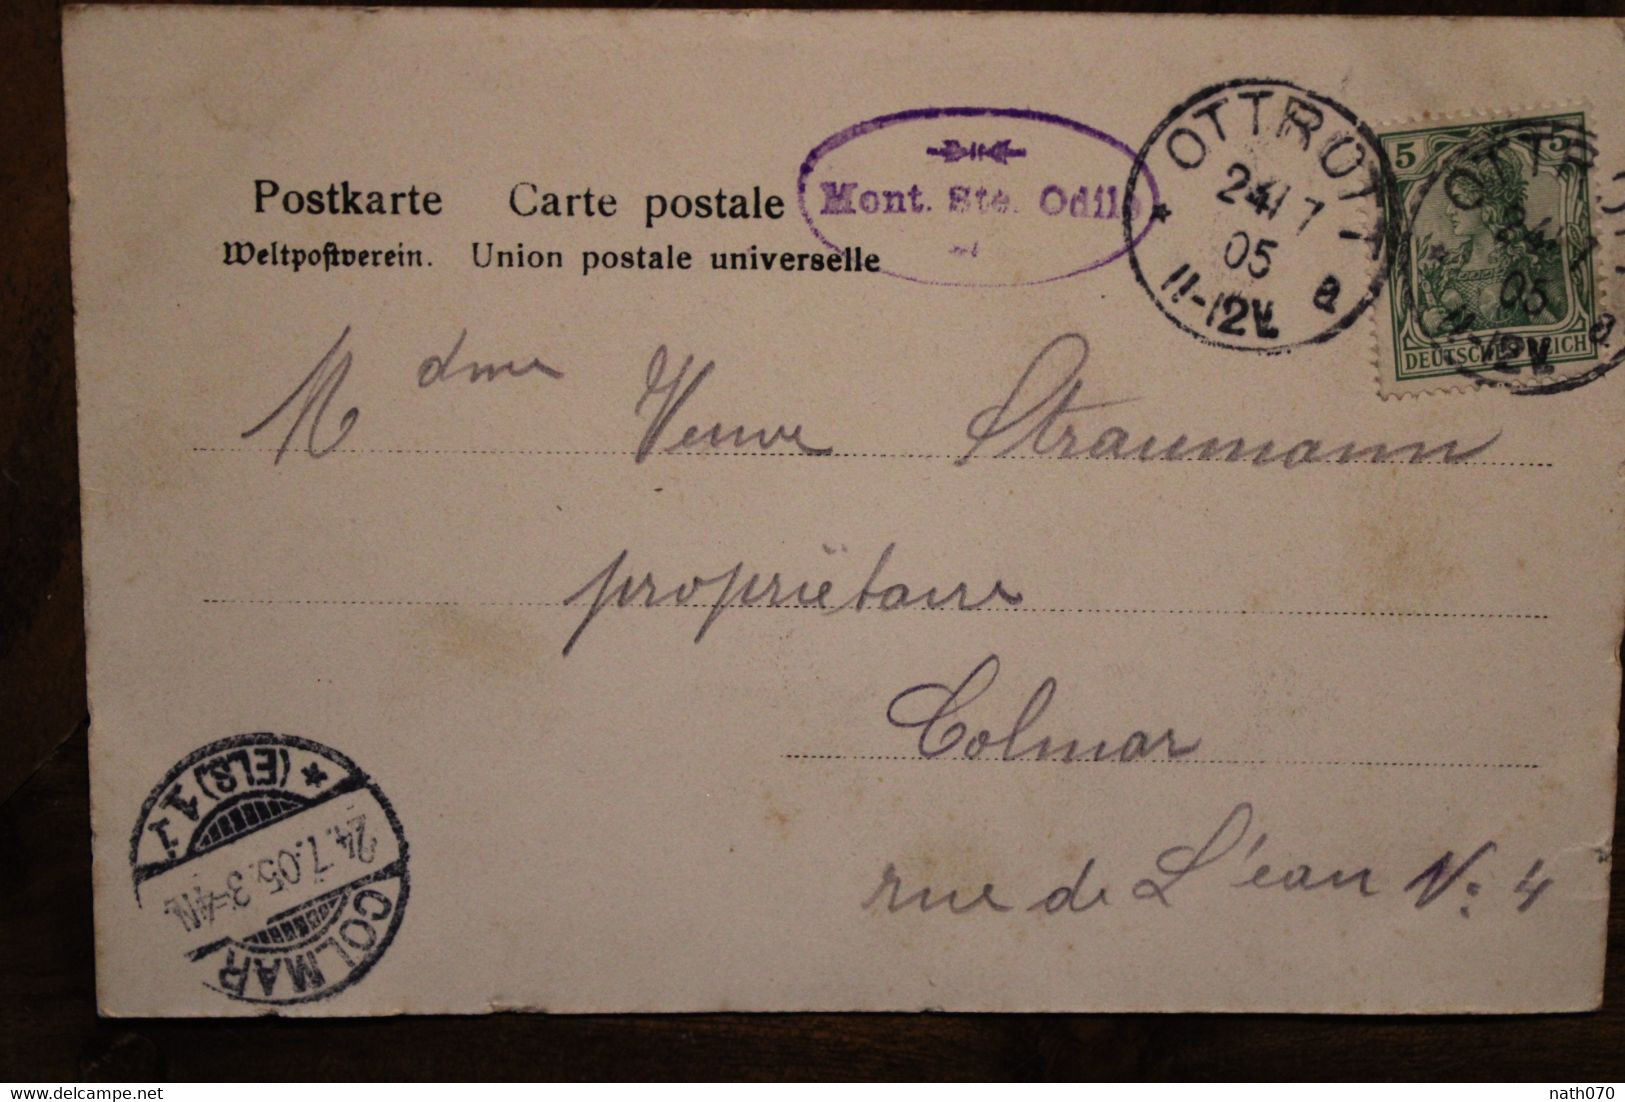 Postkarte Carte postale
Weltpostverein. Union postale universelle
Mont. Ste. Odile
OTTROTT
24/7
05
11-12V.
a
5 5
DEUTSCHES REICH
OTTROTT
24/7
05
11-12V.
a
Mdme Veuve Straumann
propriëtaire
Colmar
rue de L'eau No: 4
COLMAR
24.7.05.3-4N.
* (ELS) 1 j
nath070